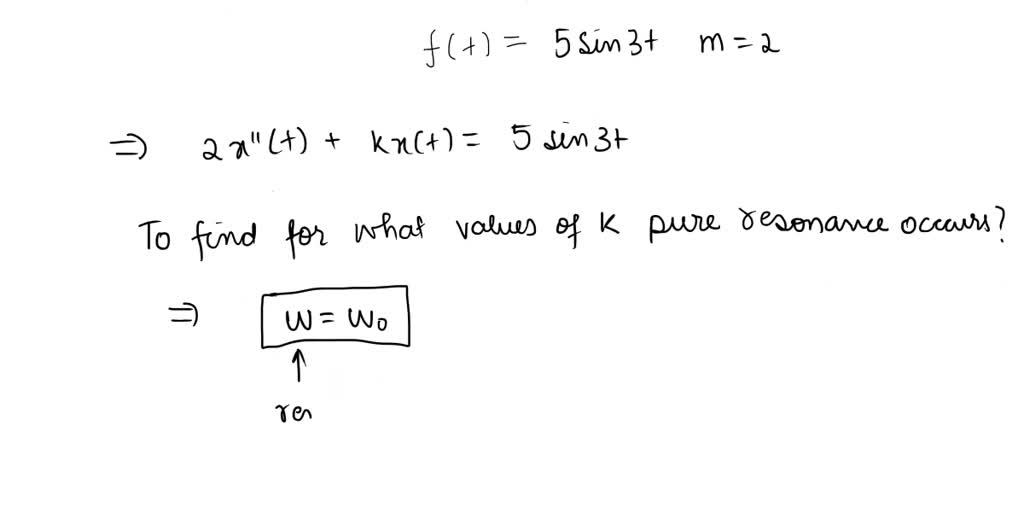 f(t) = 5 sin 3t m = 2
⇒ 2x''(t) + kx(t) = 5 sin 3t
To find for what values of k pure resonance occurs?
⇒ w = w₀
↑
res